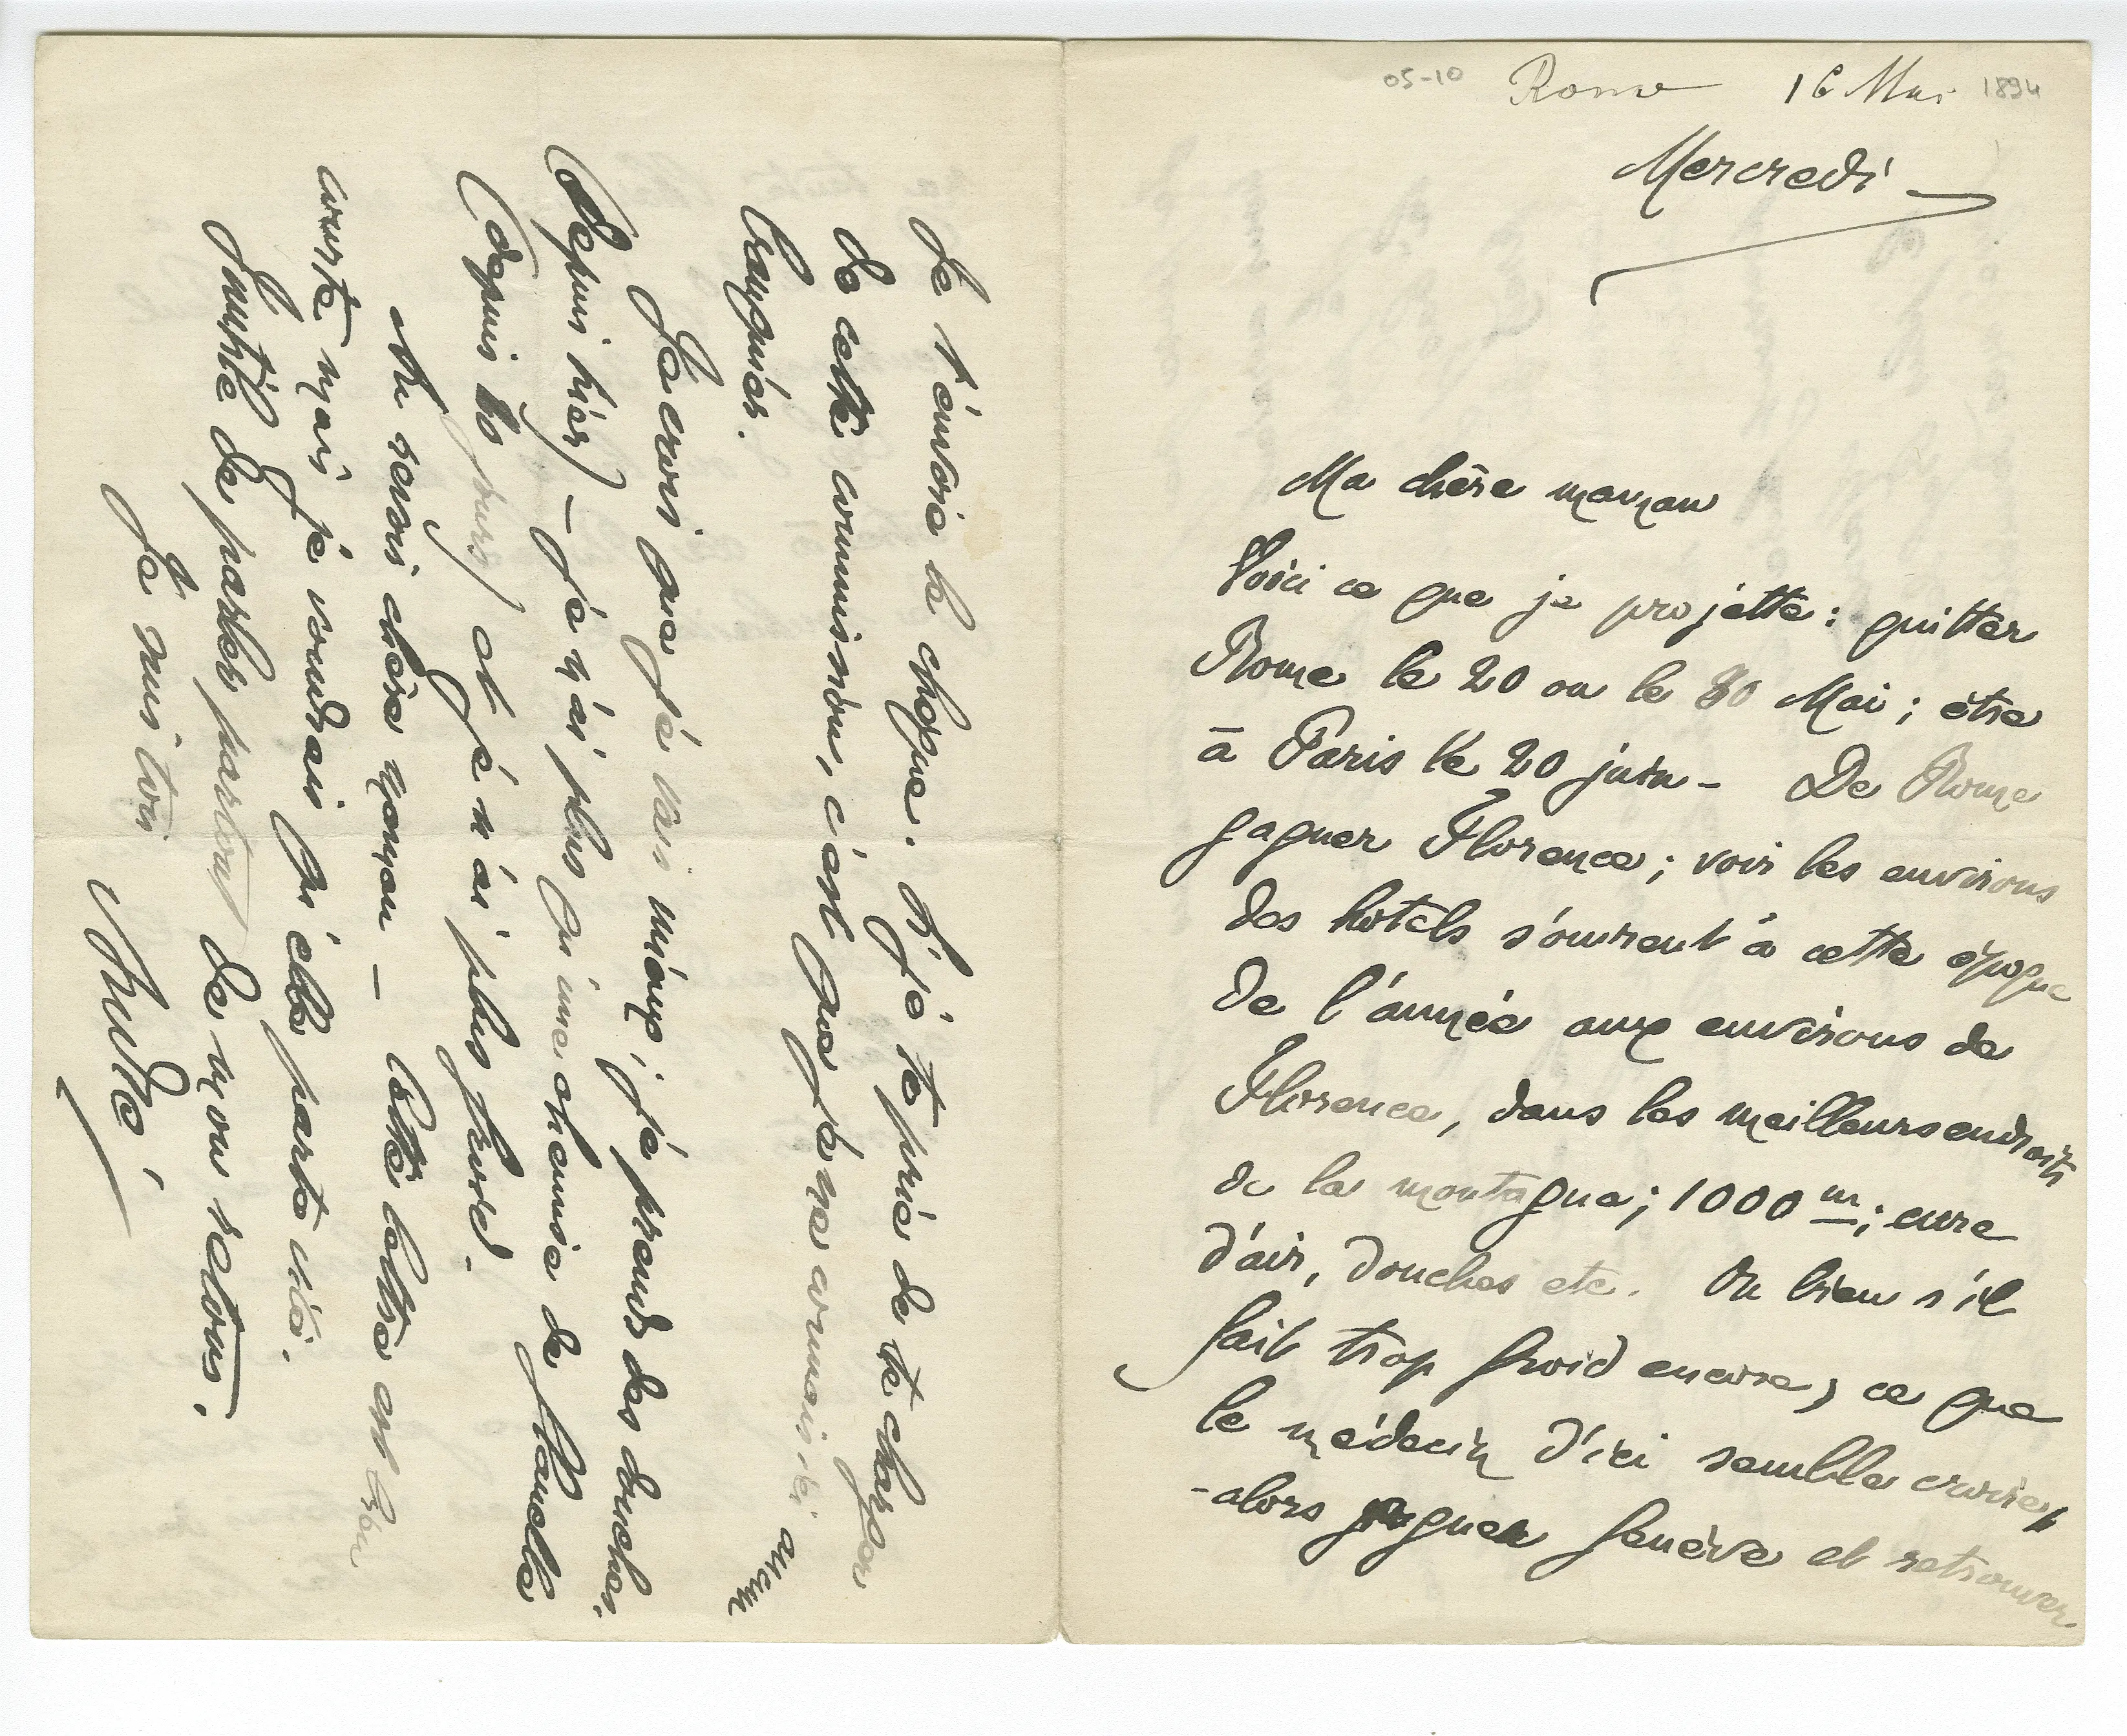 05-10 Rome 16 Mai 1894
Mercredi
Ma chère maman
Voici ce que je projette : quitter
Rome le 20 ou le 30 Mai ; être
à Paris le 20 juin - De Rome
gagner Florence ; voir les environs
des hôtels s'ouvrent à cette époque
de l'année aux environs de
Florence, dans les meilleurs endroits
de la montagne ; 1000 m ; cure
d'air, douches etc. Ou bien s'il
fait trop froid encore, ce que
le médecin d'ici semble
- alors gagner Genève et retrouver
Je t'envoie le chèque. Si je te prie de te charger
de cette commission, c'est que je ne connais ici aucun
banquier.
Je crois que je vais mieux ; je prends des douches.
(depuis hier) - je n'ai plus qu'une chemise de flanelle
(depuis jours) et je n'ai plus froid.
Au revoir chère maman - Cette lettre est bien
courte mais je voudrais qu'elle parte vite.
Inutile de parler partout de mon retour.
Je suis ton
André